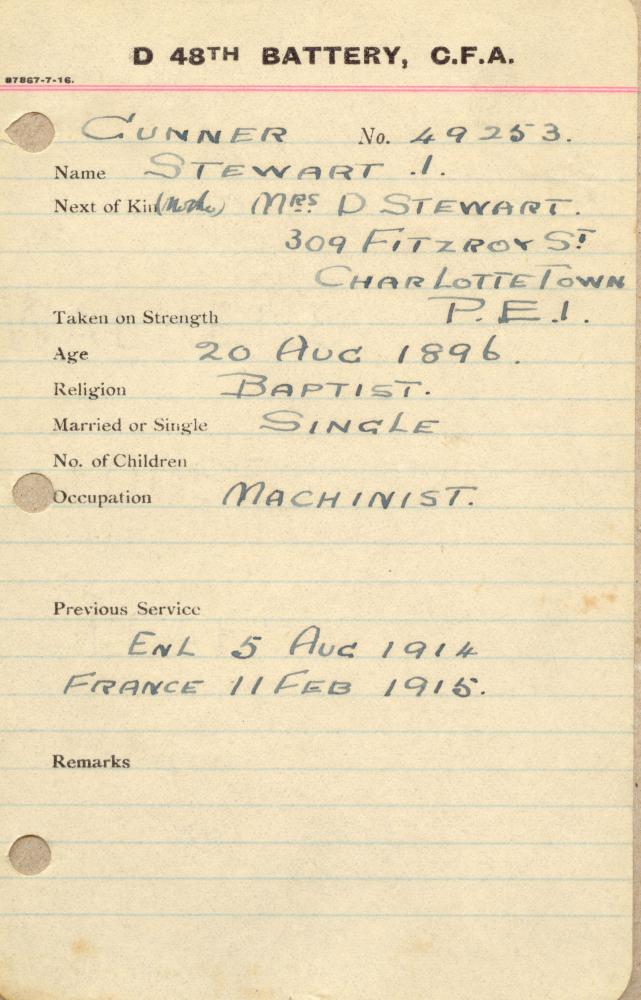 D 48TH BATTERY, C.F.A.
87867-7-16.
GUNNER No. 49253.
Name STEWART .I.
Next of Kin (Mother) MRS D STEWART.
309 FITZROY ST
CHARLOTTETOWN
Taken on Strength P.E.I.
Age 20 AUG 1896.
Religion BAPTIST.
Married or Single SINGLE
No. of Children
Occupation MACHINIST.
Previous Service
ENL 5 AUG 1914
FRANCE 11 FEB 1915.
Remarks